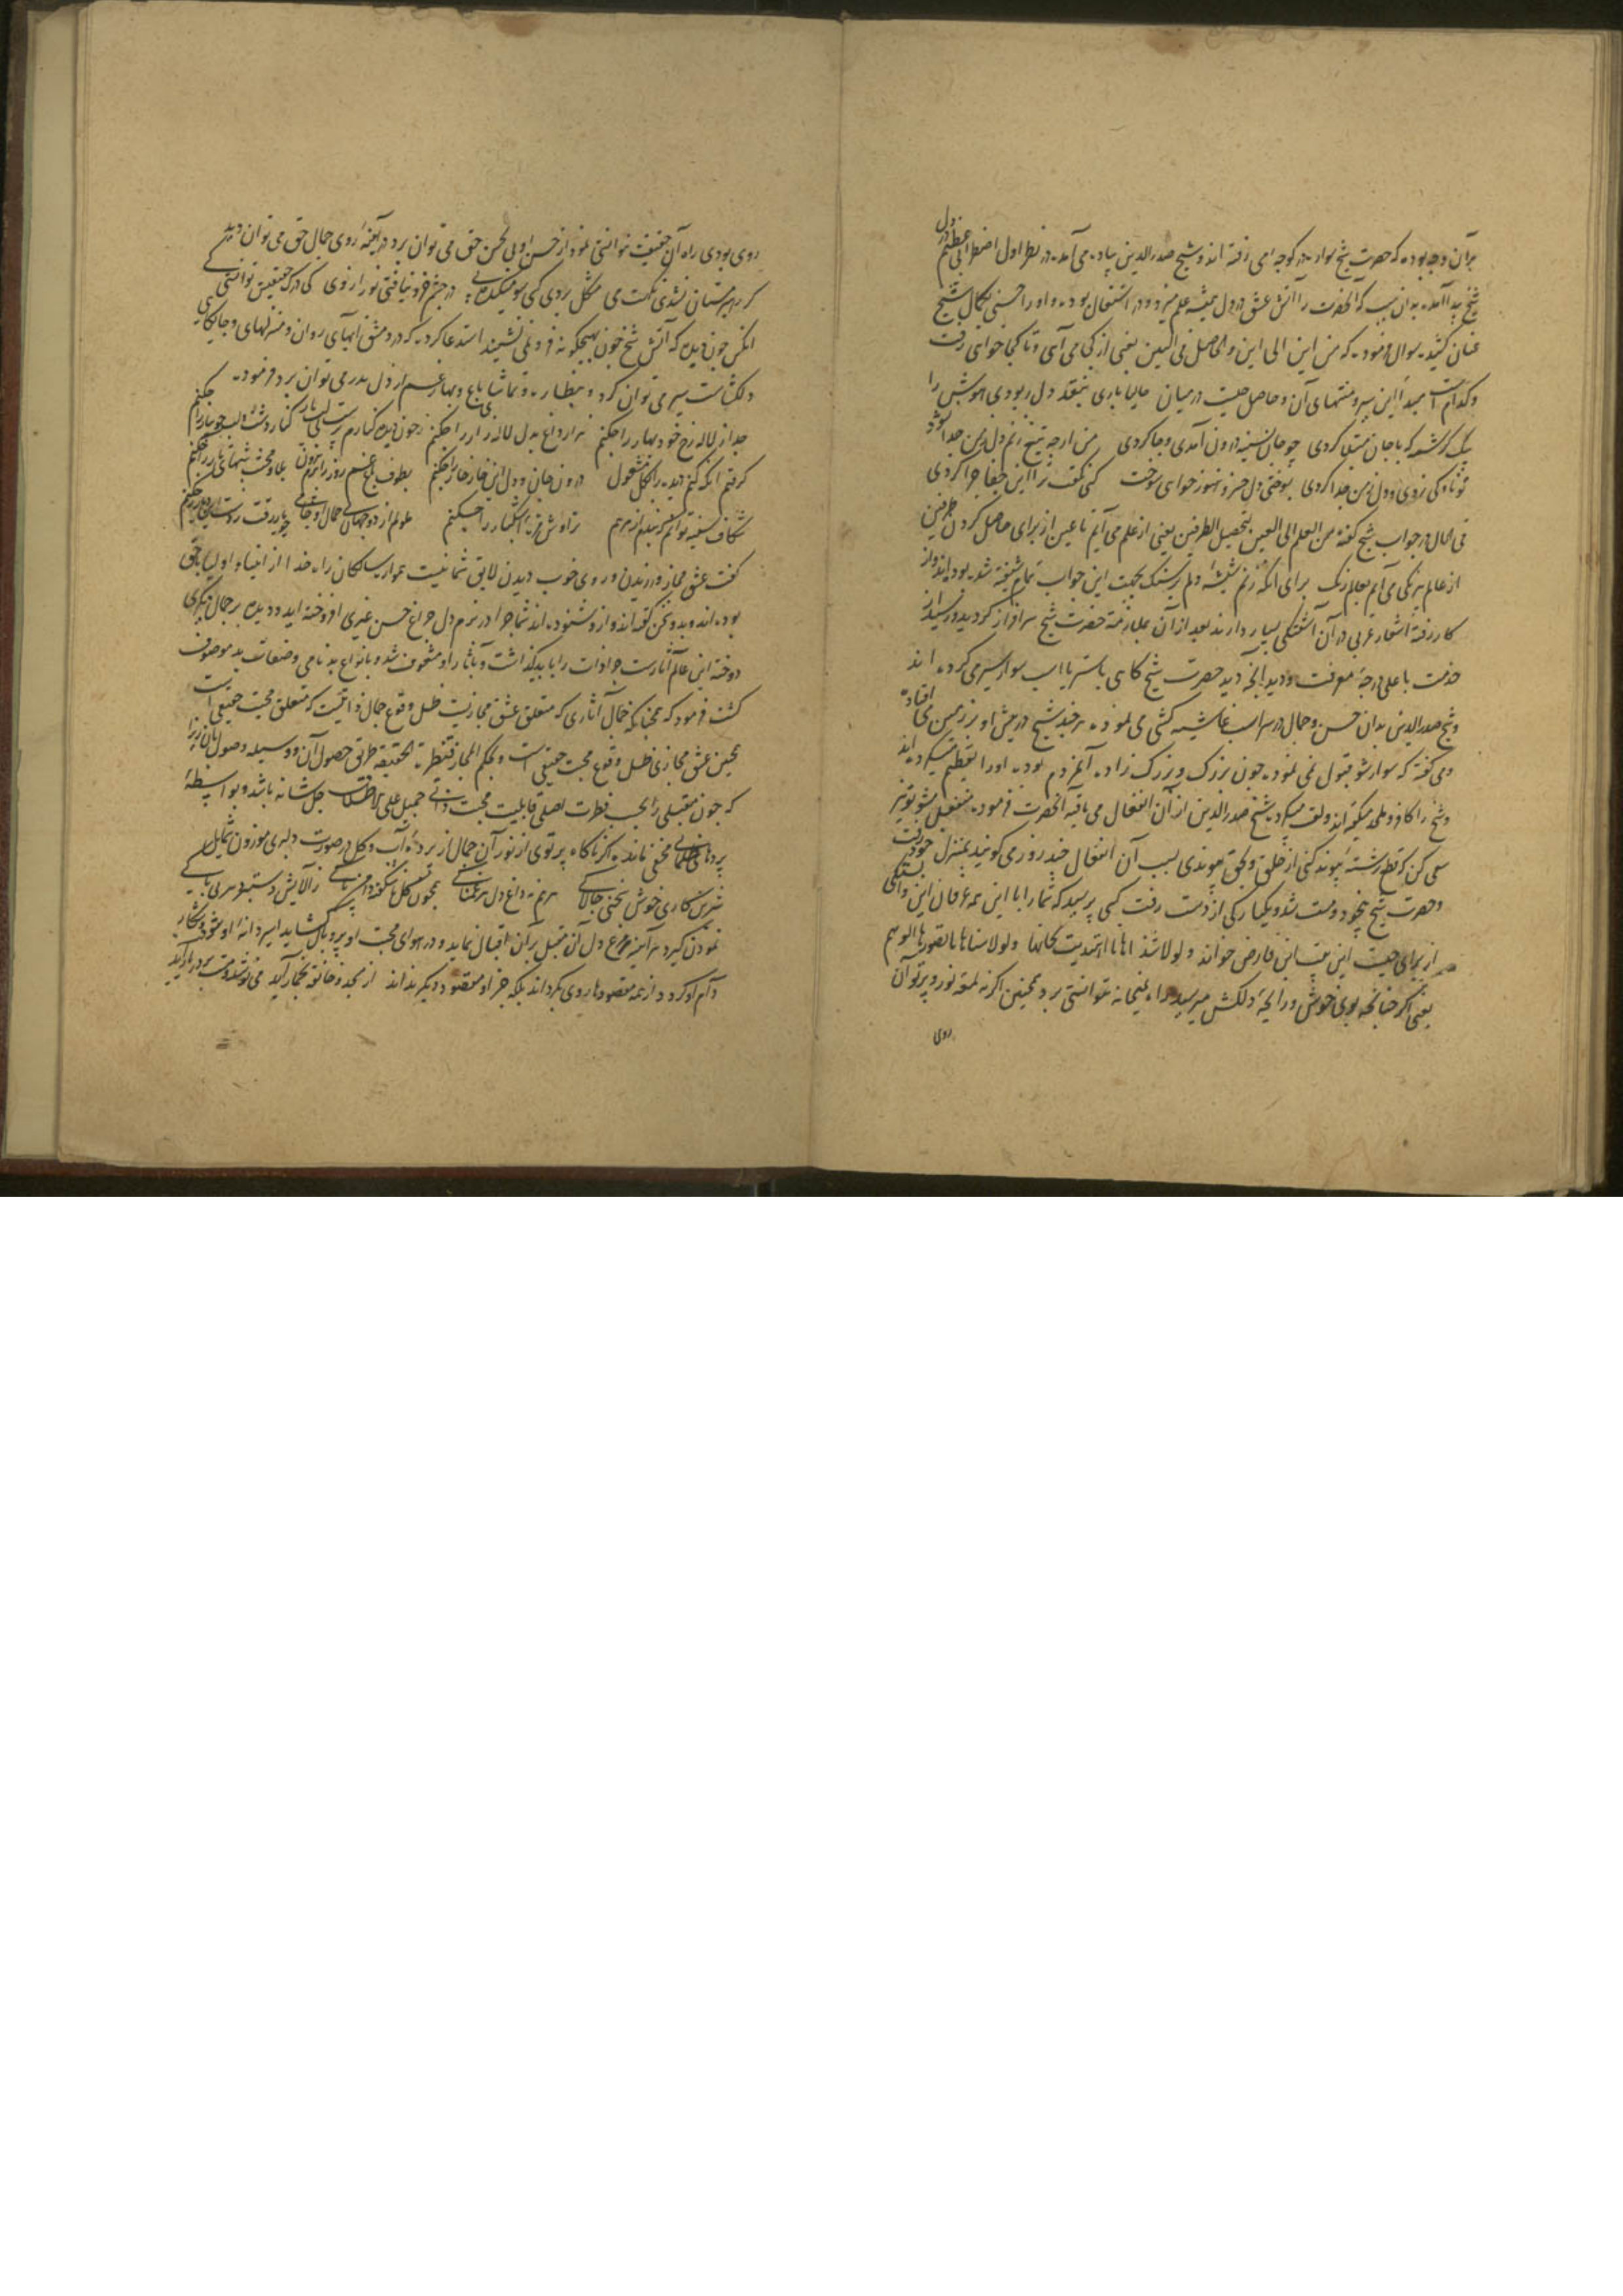 بر آن وجه بوده که حضرت شیخ سواره در کوچه می رفته اند و شیخ صدرالدین پیاده می آمده در نظر اول اضطرابی عظیم در دل
شیخ پیدا آمده بدان سبب که آنحضرت را آتش عشق در دل همیشه علم میزد و در اشتعال بود و او را حسنی بکمال شیخ
عنان کشیده سوال فرموده که من این الی این و الحاصل فی البین یعنی از کجا می آی و تا کجا خواهی رفت
و کدام است مبدا این سیر و منتهای آن و حاصل چیست در میان بنقد دل ربودی هوش را
یک کرشمه که با جان مبتلا کردی چو جان بسینه درون آمدی و جا کردی من ار چه تیغ زنم دل ز من جدا نشود
تو ناوکی زدی و دل ز من جدا کردی بسوختی دل خسرو هنوز خواهی سوخت کسی نگفت ترا این جفا چرا کردی
فی الحال در جواب شیخ گفته من العلم الی العین لتحصیل الطرفین یعنی از علم می آیم تا عین از برای حاصل کردن طرفین
از عالم بیرنگی می آیم بعالم رنگ برای آنکه زنم شیشهٔ دلم بر سنگ بجهت این جواب تمام شیفته شده بوده اند و از
کار رفته اشعار عربی در آن آشفتگی بسیار دارند بعد از آن بملازمت حضرت شیخ سرافراز گردیده و رسید از
خدمت باعلی درجهٔ معرفت و دید آنچه دید حضرت شیخ گاهی باستر یا اسب سوار سیر می کرده اند
و شیخ صدرالدین بدان حسن و جمال در سر اسب غاشیه کشی می نموده هر چند شیخ در پیش او بر زمین می افتاده
و می گفته که سوار شو قبول نمی نموده چون بزرگ و بزرگ زاده آنمردم بوده او را تعظیم میکرده اند
و شیخ را کافر و ملحد میگفته اند و لعن میکرده شیخ صدرالدین از آن انفعال می یافته آنحضرت فرموده منفعل مشو تو نیز
سعی کن که قطع رشتهٔ پیوند کنی از خلق و بحق پیوندی بسبب آن انفعال چند روز می گویند بمنزل خود رفت
و حضرت شیخ بیخود و مست شد و یکبارگی از دست رفت کسی پرسید که شما را با این همه عرفان این وابستگی
از برای چیست این بیت ابن فارض خواند و لولا شذاها ما اهتدیت لحانها و لولا سناها ما تصورها الوهم
یعنی اگر چنانچه بوی خوش و رایحهٔ دلکش میرسید راه بمیخانه نتوانستی برد همچنین اگر نه لمعهٔ نور و پرتو آن
روی
روی بودی راه آن حقیقت نتوانستی نمود از حسن او بی بحسن حق می توان برد در آینهٔ روی جمال حق می توان دید
گر رهبر مستان نشدی نکهت می مشکل بردی کسی سوی میکده پی در چشم خرد نیافتی نور از وی کی درک حقیقتش توانستی کی
آنکس چون دیده که آتش شیخ چون بهیچگونه فرو نمی نشیند استدعا کرده که در دمشق آبهای روان و منزلهای و جایگاهی
دلگشاست سیر می توان کرد و بنظاره و تماشای باغ و بهار غم از دل بدر می توان برد فرموده
جدا ز لاله رخ خود بهار را چکنم هزار داغ بدل لاله زار را چکنم ز خون دیده کنارم پرست بی لب یار کنار کشت و لب جویبار را چکنم
گرفتم آنکه کنم دیده را بگل مشغول درون جان و دل این خارخار را چکنم بطوف باغ غم روز را برم بیرون بلا و محنت شبهای تار را چکنم
شکاف سینه توانم که بندم از مرهم تراوش مژهٔ اشکبار را چکنم ملولم از دو جهان بی جمال او جامی چو یار رفت ز دست این دیار را چکنم
گفت عشق مجاز ورزیدن و روی خوب دیدن لایق شما نیست همواره سالکان راه خدا از انبیا و اولیا بحق
بوده اند و بدو سخن گفته اند و ازو شنوده اند شما چرا در بزم دل چراغ حسن غیری افروخته اید و دیده بر جمال دیگری
دوخته این عالم آثارست چرا ذات را باید گذاشت و بآثار او مشعوف شد و بانواع بدنامی و صفات بد موصوف
گشت فرمود که همچنانکه جمال آثاری که متعلق عشق مجازیست ظل و فرع جمال ذاتیست که متعلق محبت حقیقی است
همچنین عشق مجازی ظل و فرع محبت حقیقی است و بحکم المجاز قنطرة الحقیقه طریق حصول آن و وسیله وصول بآن زیرا
که چون مقبلی را بحسب فطرت اصلی قابلیت محبت ذاتی جمیل علی الاطلاق جل شانه باشد و بواسطهٔ
پردهای ظلمانی مخفی مانده اگر ناگاه پرتوی از نور آن جمال از پردهٔ آب و گل در صورت دلبری موزون شمایل
شیرین کاری خوش سخنی چالاکی مرهم نه داغ دل هر غمناکی همچون گل نو شگفته دامن پاکی ز آلایش دستبرد هر بی باکی
نمودن گیرد هر آینه مرغ دل آن مقبل بر آن اقبال نماید و در هوای محبت او پر و بال گشاید اسیر دانهٔ او شود و شکار
دام او گردد و از همه مقصودها روی بگرداند بلکه جز او مقصود دیگر نداند از مسجد و خانقه بخمار آید می نوشد و مست بر در یار آید